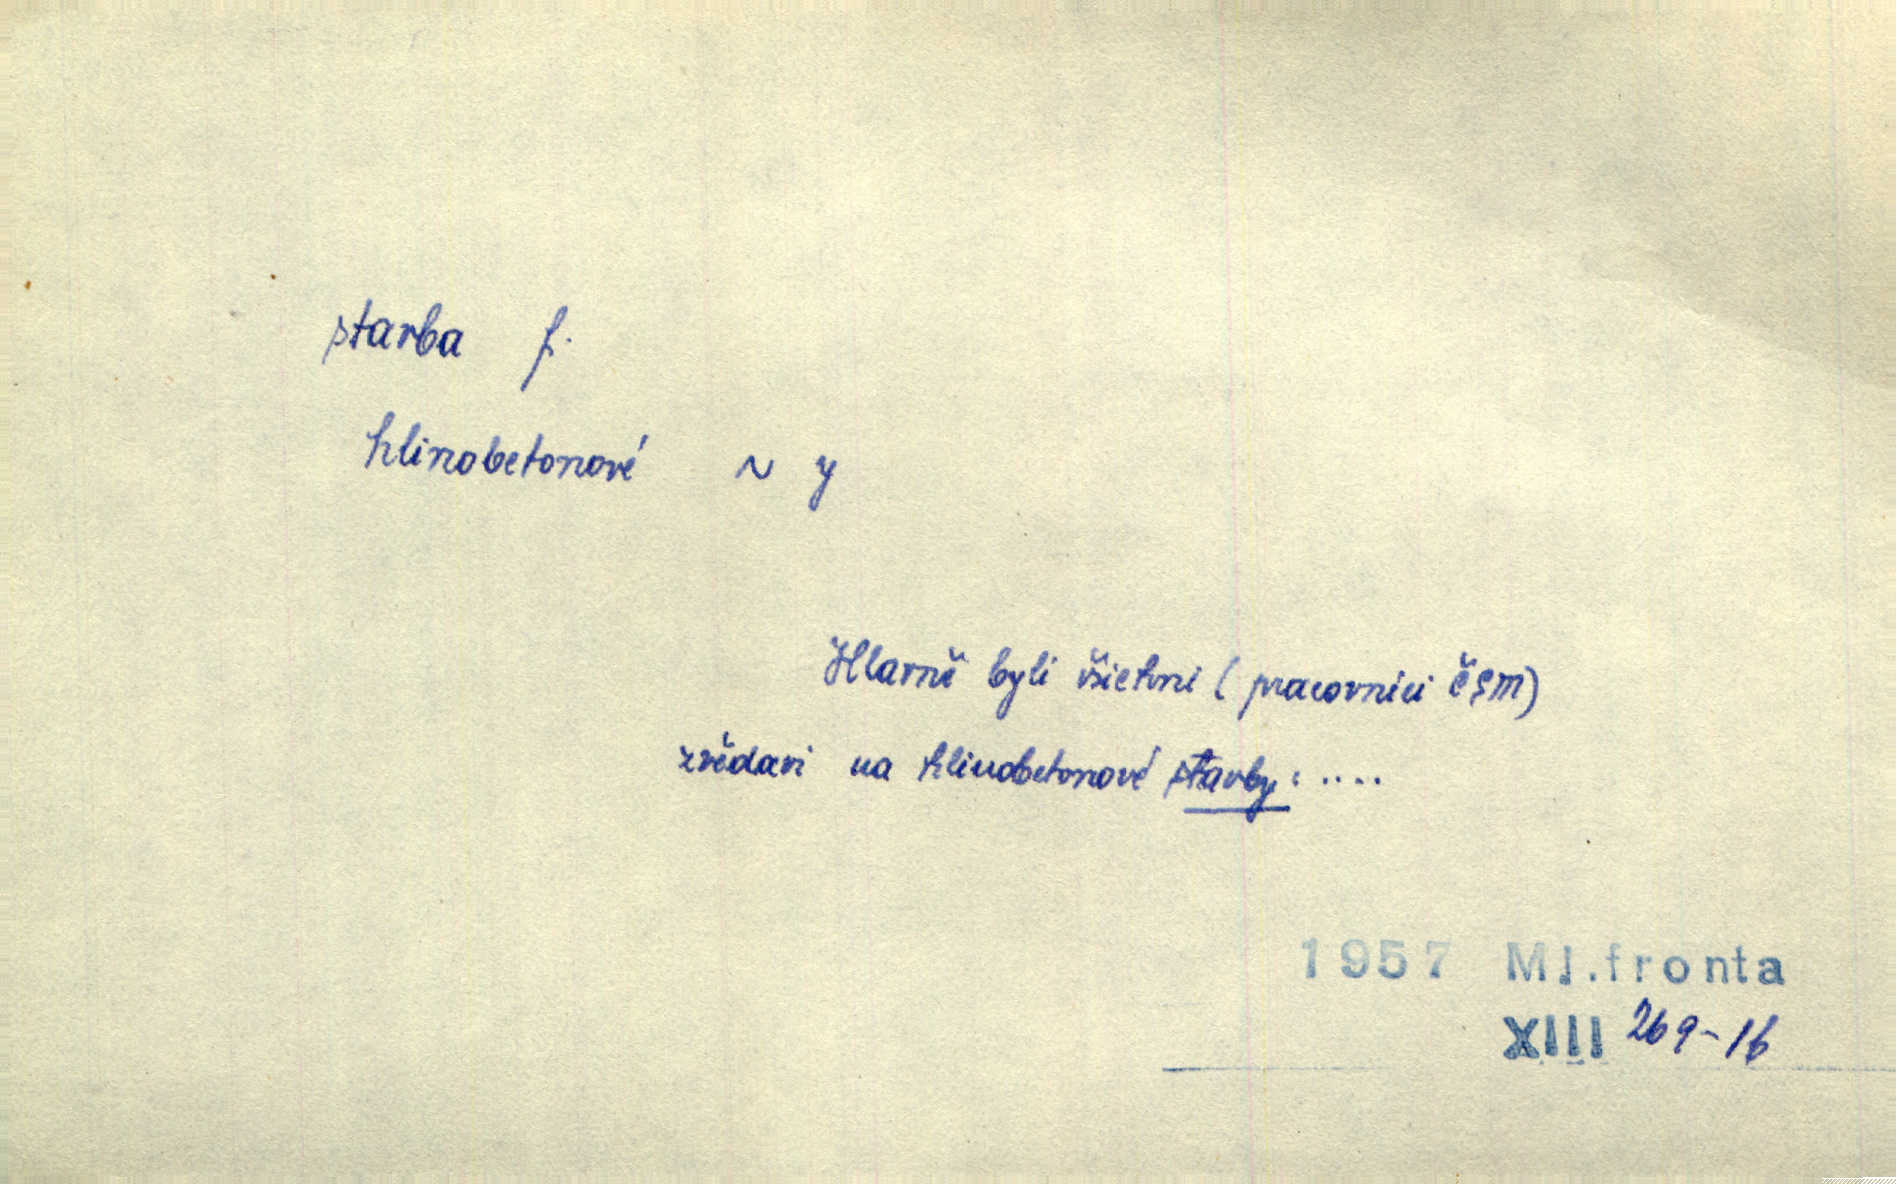 stavba f.
hlinobetonové ~ y
Hlavně byli všichni (pracovníci ČSM)
zvědavi na hlinobetonové stavby: ....
1957 Ml.fronta
XIII 269-16